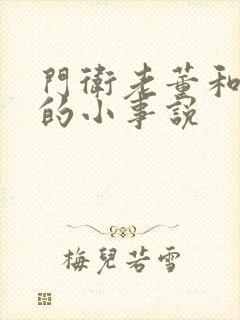 門衛老董和
的小事說
梅兒若雪